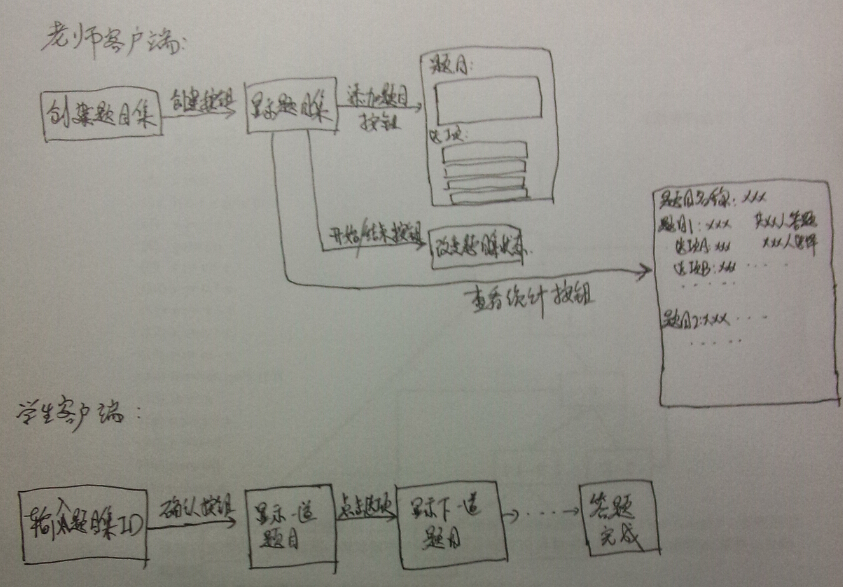 老师客户端:
创建题目集
创建按钮
显示题目集
添加题目
按钮
题目:
选项:
开始/结束按钮
改变题目集状态
查看统计按钮
题目名称: xxx
题目1: xxx 共xx人答题
选项A: xxx xxx人选择
选项B: xxx ....
.....
题目2: xxx ...
.....
学生客户端:
输入题目集ID
确认按钮
显示一道
题目
点击选项
显示下一道
题目
......
答题
完成